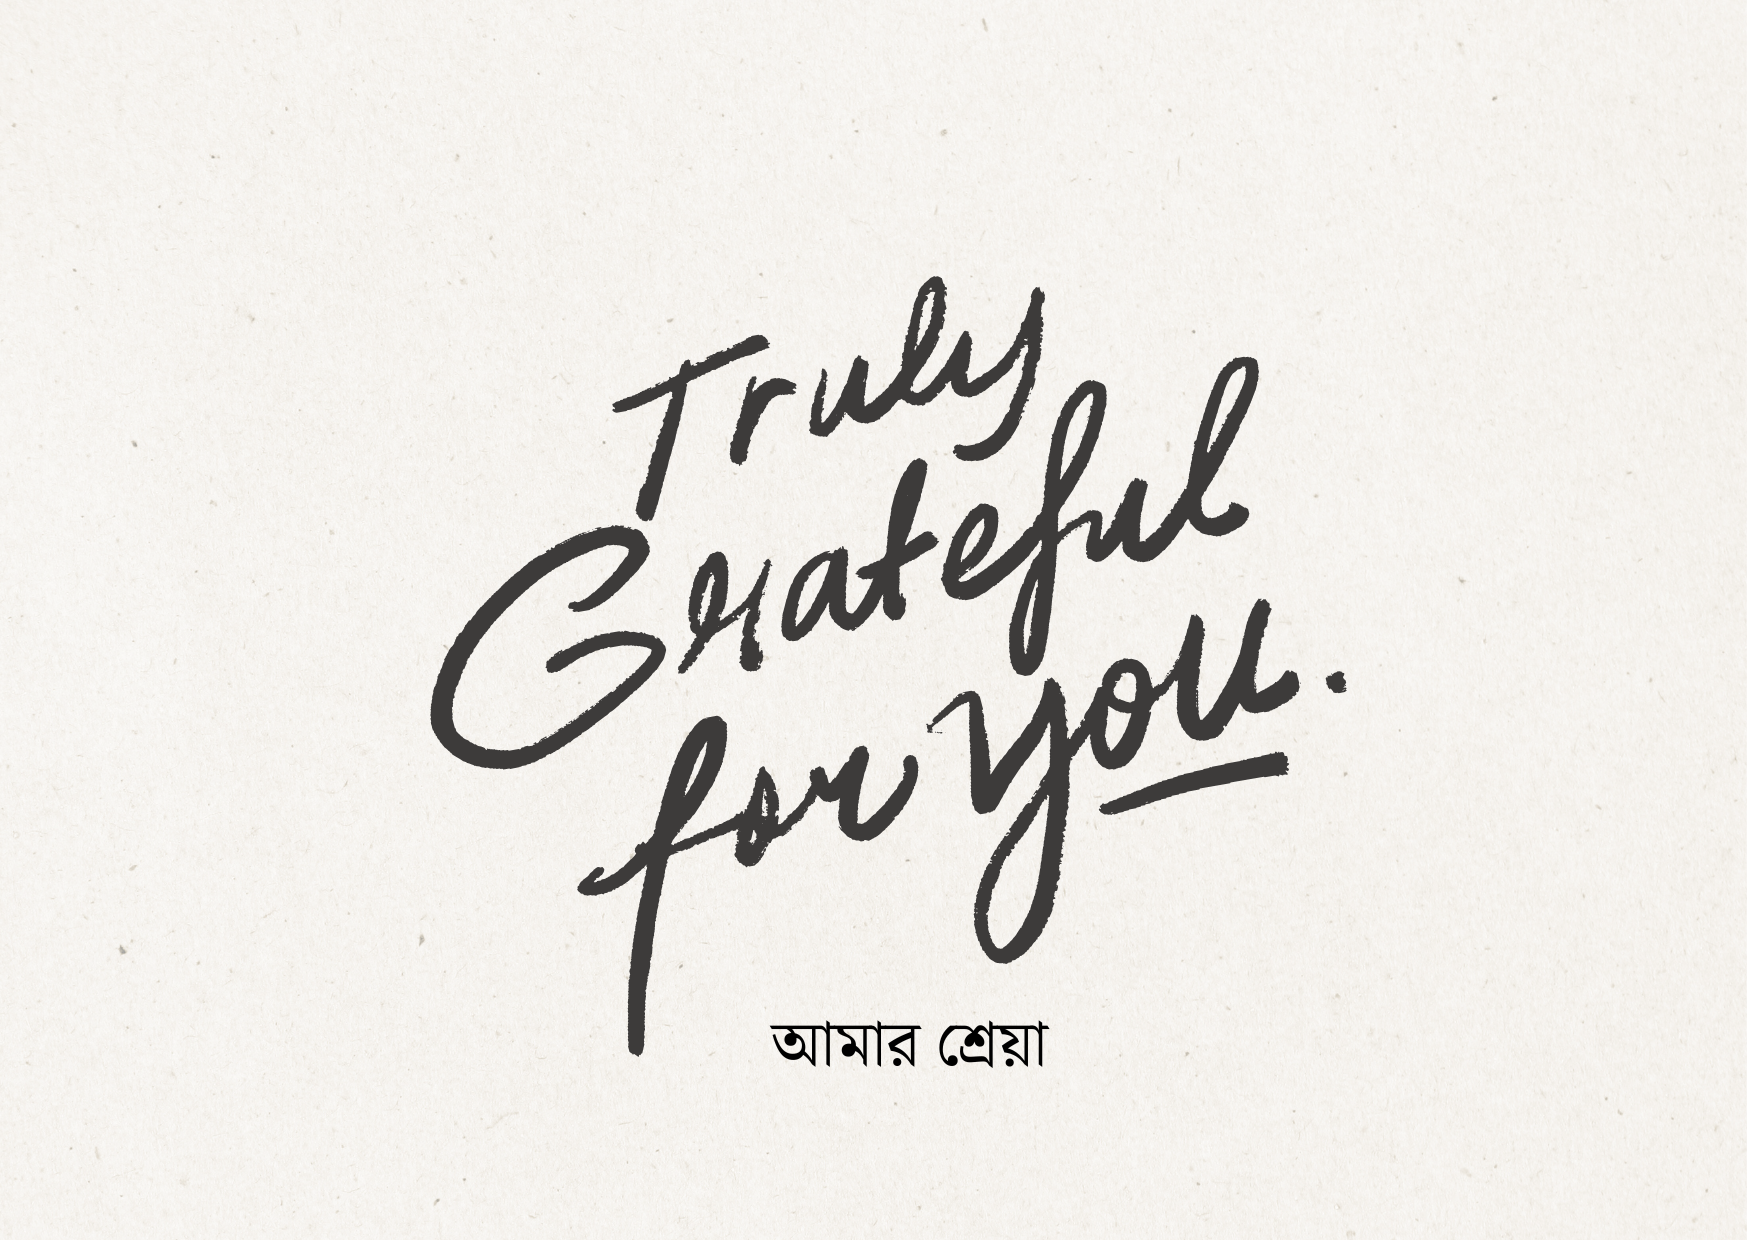 Truly
Grateful
for you.
আমার শ্রেয়া